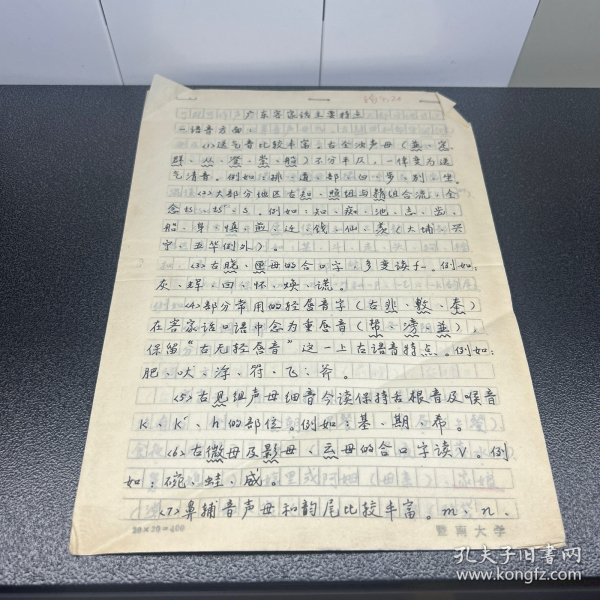 广东客家话主要特点
一语音方面:
(1)送气音比较丰富。古全浊声母(並、定、
群、从、澄、崇、船)不分平仄,一律变为送
气清音。例如:排、道、部、白、步、别、坐。
(2)大部分地区古知、照组与精组合流,全
念ts、ts‘、s。例如:知、痴、池、志、出、
船、身、煎、迁、钱、仙、羡(大埔、兴
宁、五华例外)。
(3)古晓、匣母的合口字,多变读f。例如:
灰、辉、回、怀、焕、谎。
(4)部分常用的轻唇音字(古非、敷、奉)
在客家话口语中念为重唇音(帮、滂、並),
保留“古无轻唇音”这一上古语音特点。例如:
肥、吠、浮、符、飞、斧。
(5)古见组声母细音今读保持舌根音及喉音
k、k‘、h的部位。例如:基、期、希。
(6)古微母及影母、云母的合口字读v,例
如:碗、蛙、威。
(7)鼻辅音声母和韵尾比较丰富。m、n、
20×20=400
暨南大学
孔夫子旧书网
www.kongfz.com